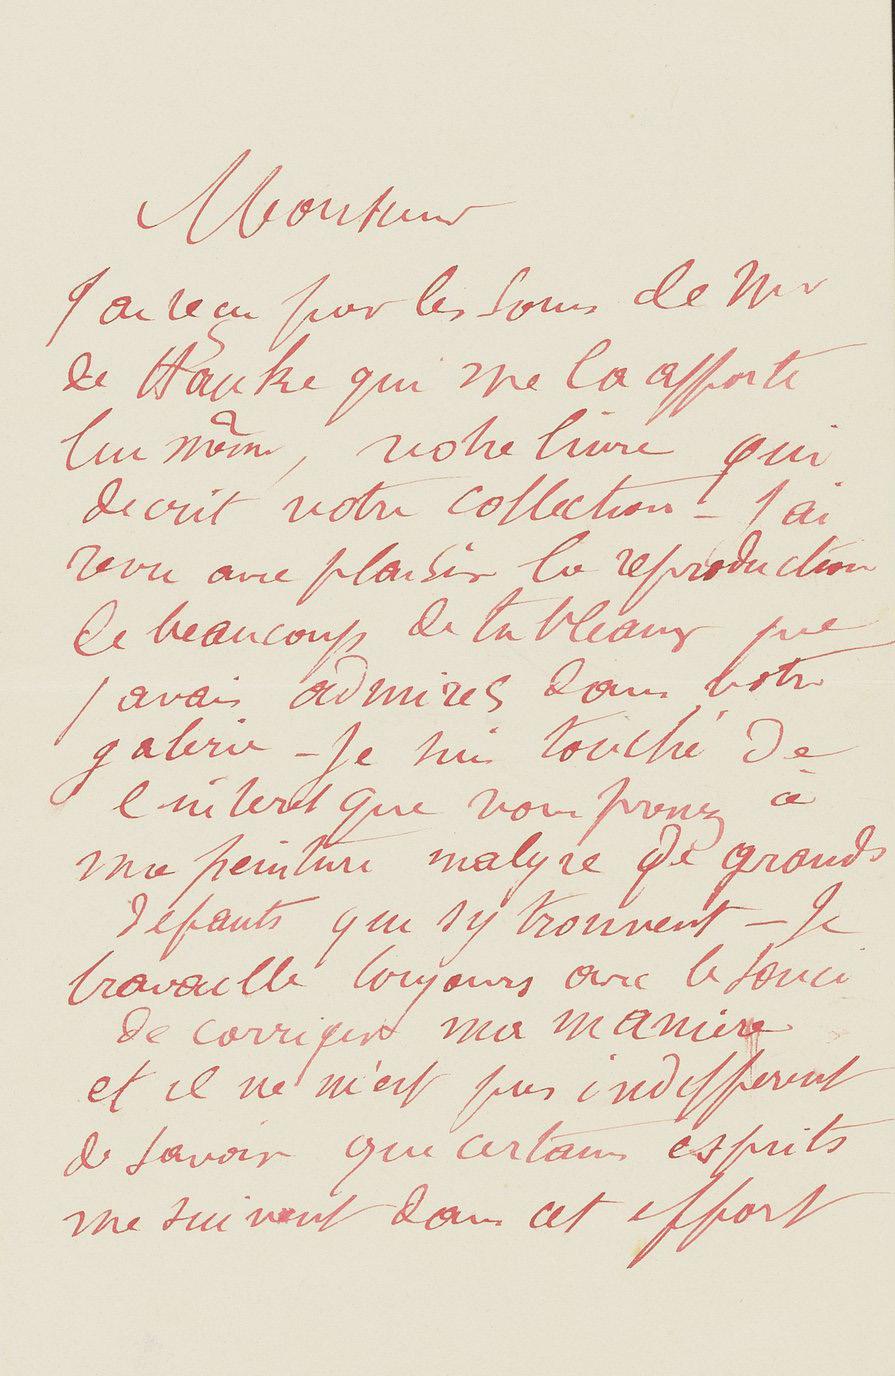 Monsieur
J'ai reçu par les soins de Mr
de Hauke qui me l'a apporté
lui même, votre livre qui
decrit votre collection - J'ai
revu avec plaisir la reproduction
de beaucoup de tableaux que
j'avais admirés dans votre
galerie - Je suis touché de
l'interet que vous prenez à
ma peinture malgre de grands
defauts qui s'y trouvent - Je
travaille toujours avec le souci
de corriger ma maniere
et il ne m'est pas indifferent
de savoir que certains esprits
me suivent dans cet effort